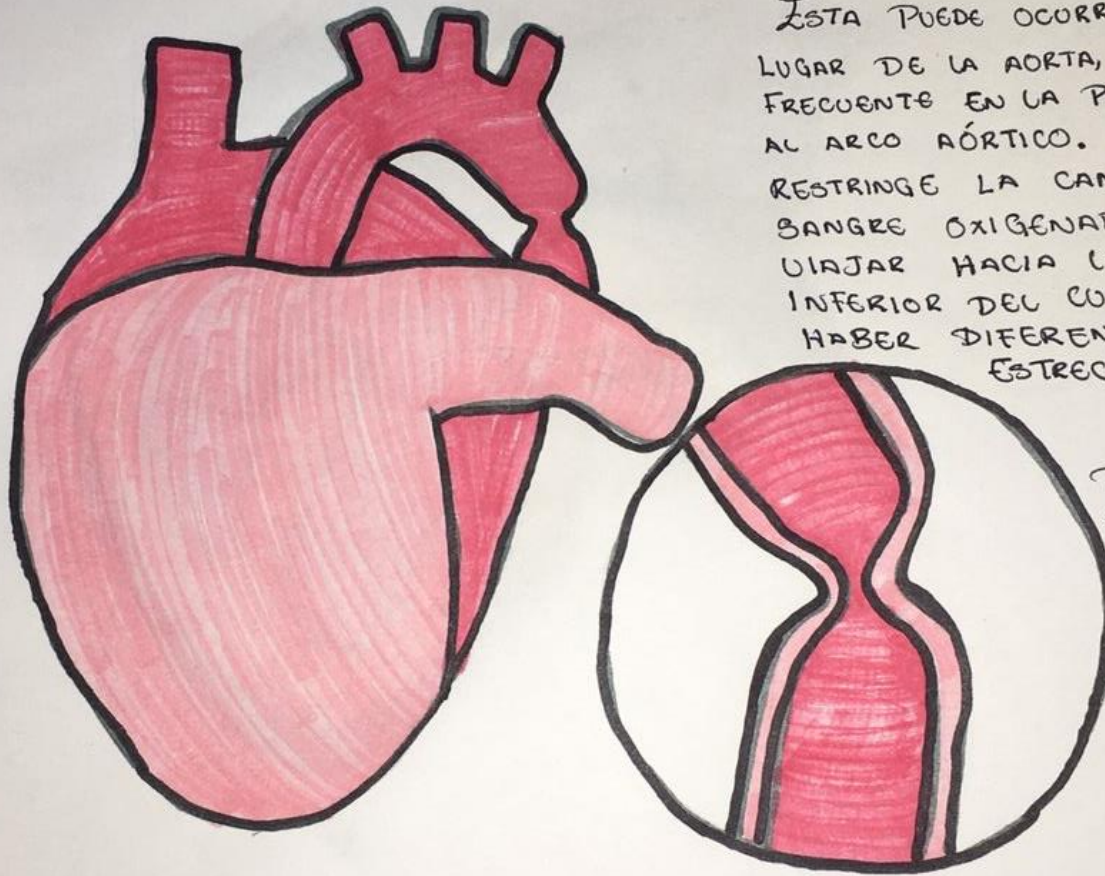 ESTA PUEDE OCURR
LUGAR DE LA AORTA,
FRECUENTE EN LA P
AL ARCO AÓRTICO.
RESTRINGE LA CAN
SANGRE OXIGENA
VIAJAR HACIA L
INFERIOR DEL CU
HABER DIFEREN
ESTREC